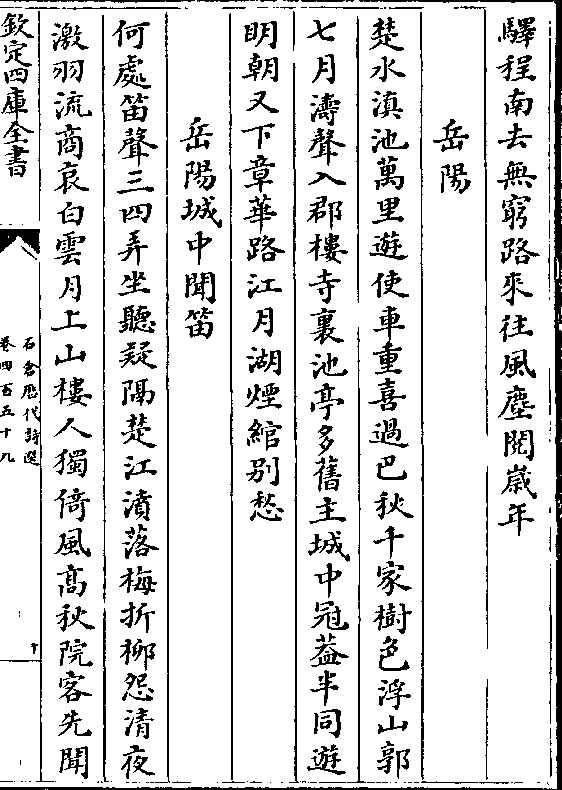 驛程南去無窮路來往風塵閱嵗年
岳陽
楚水滇池萬里遊使車重喜過巴秋千家樹色浮山郭
七月濤聲入郡樓寺裏池亭多舊主城中冠葢半同遊
明朝又下章華路江月湖煙綰别愁
岳陽城中聞笛
何處笛聲三四弄坐聽疑隔楚江濆落梅折栁怨清夜
激羽流商哀白雲月上山樓人獨倚風髙秋院客先聞
欽定四庫全書
石倉歴代詩選
卷四百五十九
十